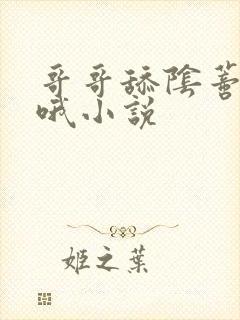 哥哥舔陰蒂
哦小説
姬之葉